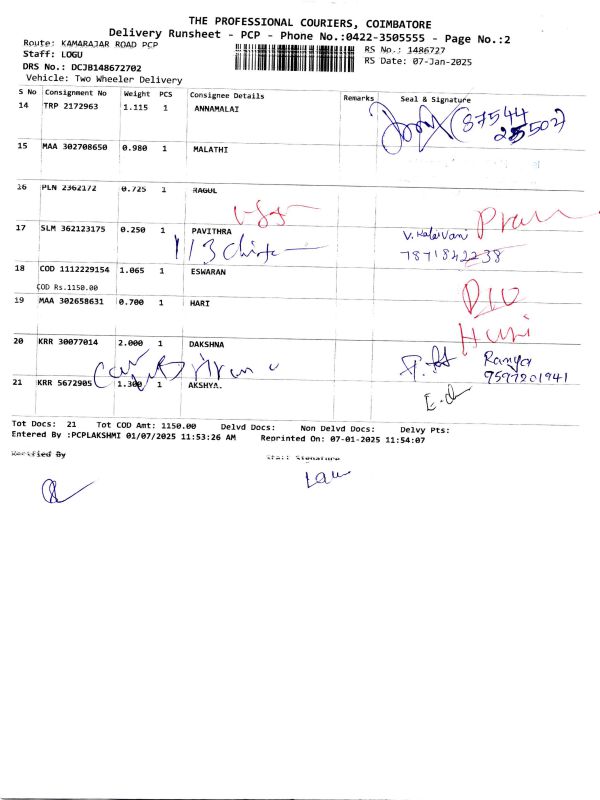 THE PROFESSIONAL COURIERS, COIMBATORE
Delivery Runsheet - PCP - Phone No.:0422-3505555 - Page No.:2
Route: KAMARAJAR ROAD PCP
RS No.: 1486727
Staff: LOGU
RS Date: 07-Jan-2025
DRS No.: DCJB148672702
Vehicle: Two Wheeler Delivery
S No Consignment No Weight PCS Consignee Details Remarks Seal & Signature
14 TRP 2172963 1.115 1 ANNAMALAI
(87544
25502)
15 MAA 302708650 0.980 1 MALATHI
16 PLN 2362172 0.725 1 RAGUL
17 SLM 362123175 0.250 1 PAVITHRA
V. Kalaivani
7871842238
18 COD 1112229154 1.065 1 ESWARAN
COD Rs.1150.00
19 MAA 302658631 0.700 1 HARI
Hari
20 KRR 30077014 2.000 1 DAKSHNA
Ramya
9597201941
21 KRR 5672905 1.300 1 AKSHYA.
Tot Docs: 21 Tot COD Amt: 1150.00 Delvd Docs: Non Delvd Docs: Delvy Pts:
Entered By :PCPLAKSHMI 01/07/2025 11:53:26 AM Reprinted On: 07-01-2025 11:54:07
Rectified By Staff Signature